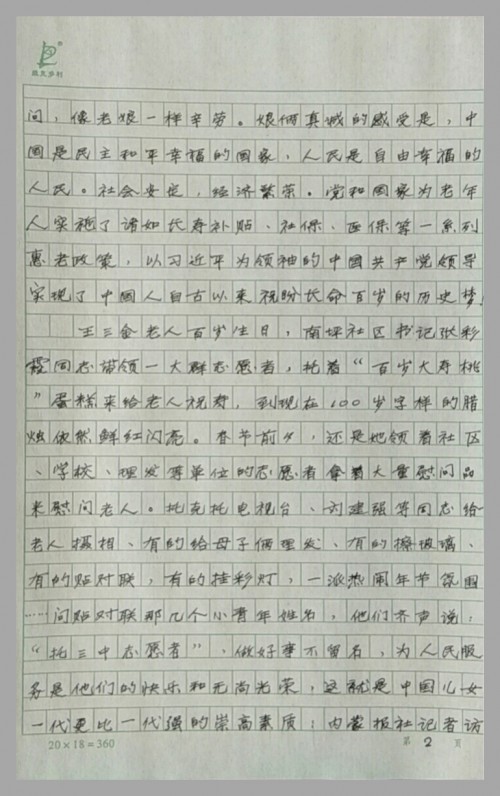 朋友乡村
问，像老娘一样辛劳。娘俩真诚的感受是，中
国是民主和平幸福的国家，人民是自由幸福的
人民。社会安定，经济繁荣。党和国家为老年
人实施了诸如长寿补贴、社保、医保等一系列
惠老政策，以习近平为领袖的中国共产党领导
实现了中国人自古以来祝盼长命百岁的历史梦！
王三金老人百岁生日，南坪社区书记张彩
霞同志带领一大群志愿者，托着“百岁大寿桃
”蛋糕来给老人祝寿，到现在100岁字样的腊
烛依然鲜红闪亮。春节前夕，还是她领着社区
、学校、理发等单位的志愿者拿着大量慰问品
来慰问老人。托克托电视台、刘建强等同志给
老人摄相、有的给母子俩理发、有的擦玻璃、
有的贴对联，有的挂彩灯，一派热闹年节氛围
……问贴对联那几个小青年姓名，他们齐声说：
“托三中志愿者”，做好事不留名，为人民服
务是他们的快乐和无尚光荣，这就是中国儿女
一代更比一代强的崇高素质；内蒙报社记者访
20×18=360 第 2 页